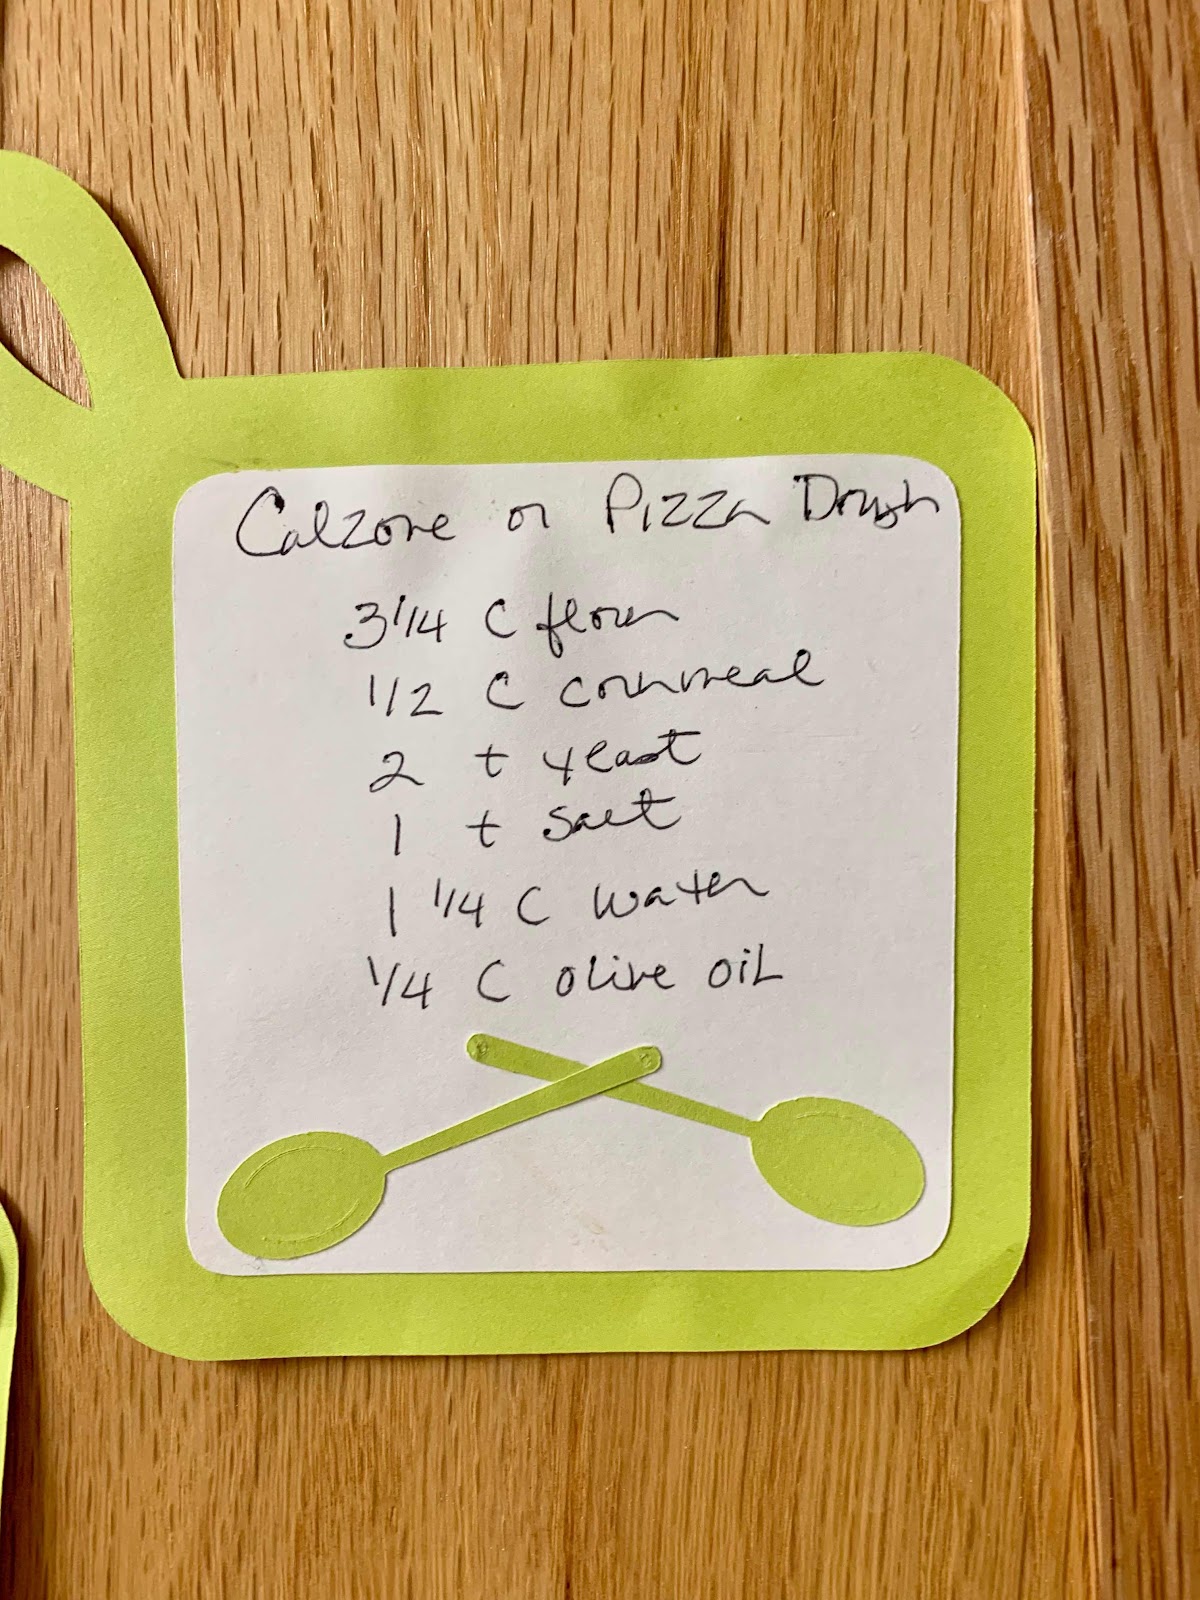 Calzone or Pizza Dough
3 1/4 C flour
1/2 C cornmeal
2 t yeast
1 t salt
1 1/4 C water
1/4 C olive oil